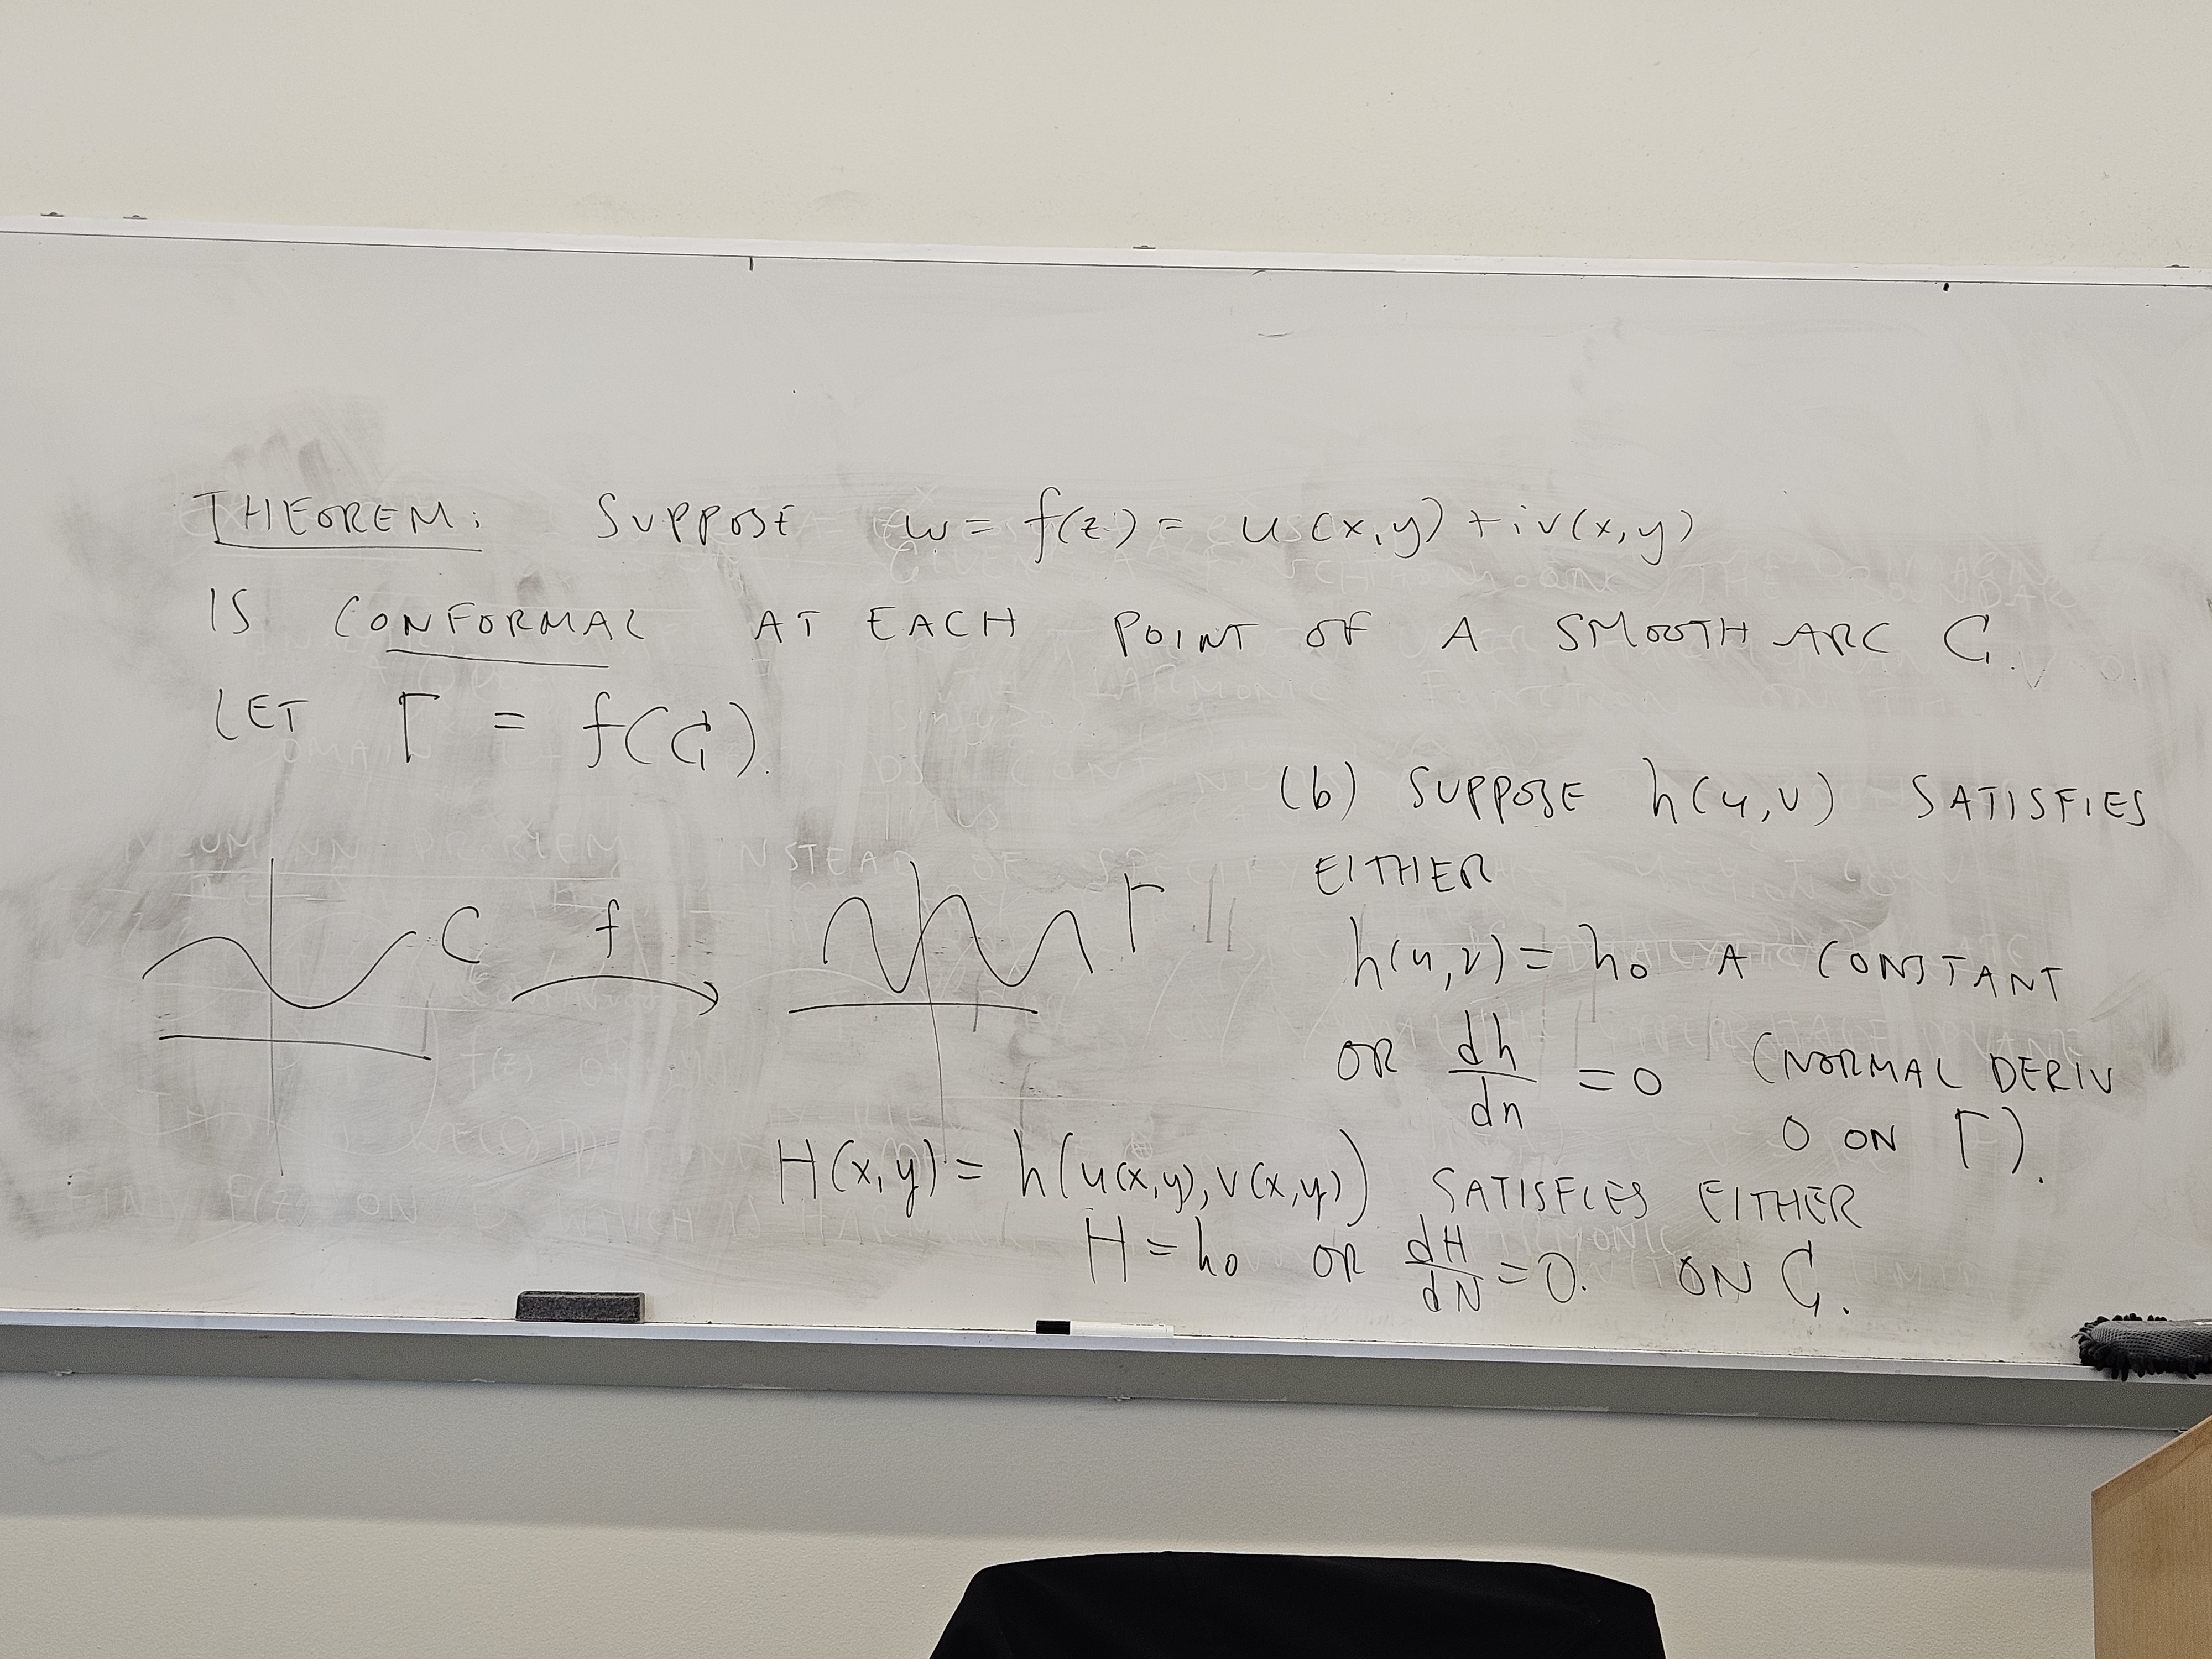 THEOREM: SUPPOSE w = f(z) = u(x,y) + iv(x,y)
IS CONFORMAL AT EACH POINT OF A SMOOTH ARC C.
LET Γ = f(C).
C f Γ
(b) SUPPOSE h(u,v) SATISFIES
EITHER
h(u,v) = h₀ A CONSTANT
OR dh/dn = 0 (NORMAL DERIV
0 ON Γ).
H(x,y) = h(u(x,y), v(x,y)) SATISFIES EITHER
H = h₀ OR dH/dN = 0. ON C.